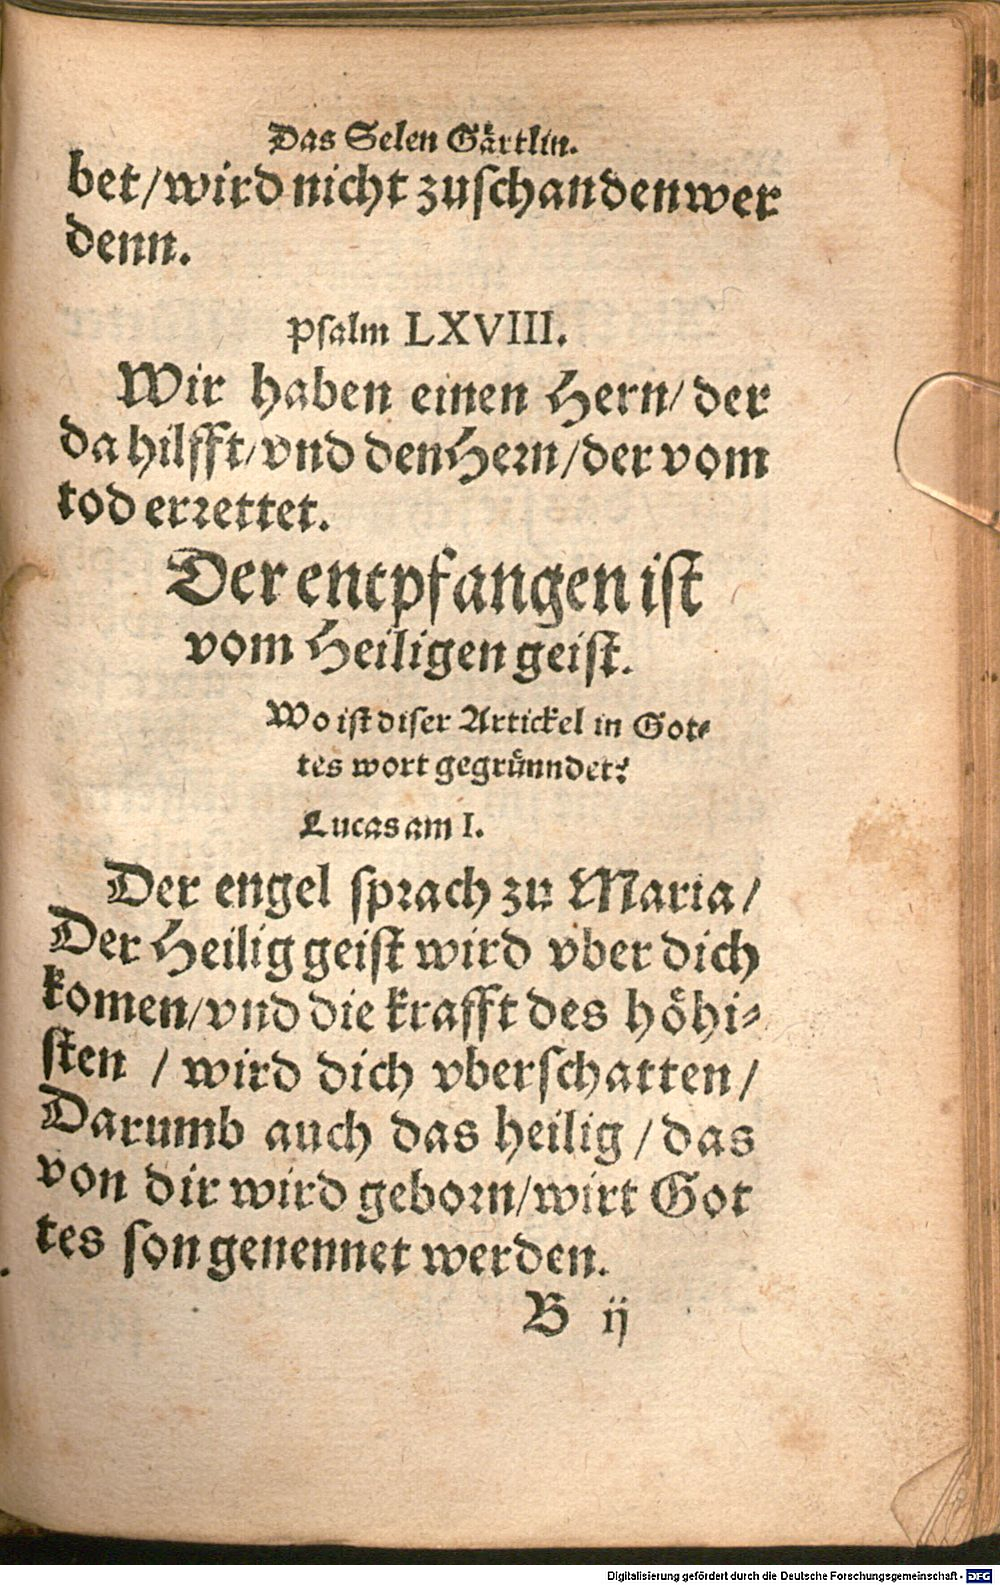 Das Selen Gaͤrtlin.
bet/wird nicht zuſchanden wer
denn.
Pſalm LXVIII.
Wir haben einen Hern/ der
da hilfft/vnd den Hern/der vom
tod errettet.
Der entpfangen iſt
vom Heiligen geiſt.
Wo iſt diſer Artickel in Got⸗
tes wort gegruͤnndet?
Lucas am I.
Der engel ſprach zu Maria/
Der Heilig geiſt wird vber dich
komen/vnd die krafft des hoͤhi⸗
ſten / wird dich vberſchatten/
Darumb auch das heilig/das
von dir wird geborn/wirt Got
tes ſon genennet werden.
B ij
Digitalisierung gefördert durch die Deutsche Forschungsgemeinschaft - DFG